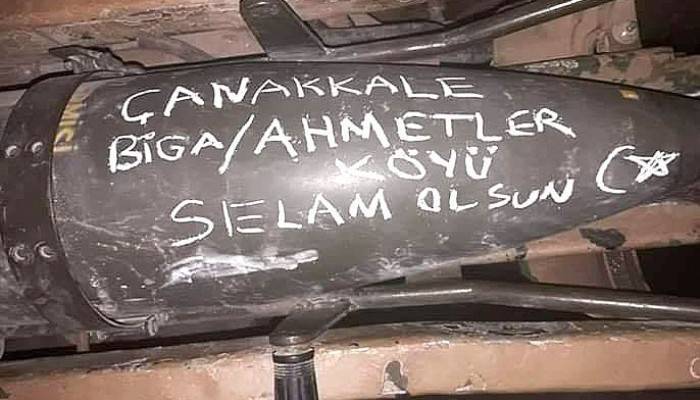 ÇANAKKALE
BİGA/AHMETLER
KÖYÜ
SELAM OLSUN